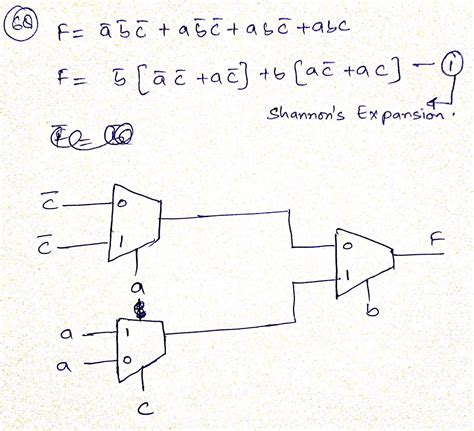 60 F = a̅ b̅ c̅ + a b̅ c̅ + a b c̅ + abc
F = b̅ [a̅ c̅ + a c̅] + b [a c̅ + a c] — 1
Shannon's Expansion.
c̅ 0
c̅ 1
a
0 F
1
b
a 1
a 0
c